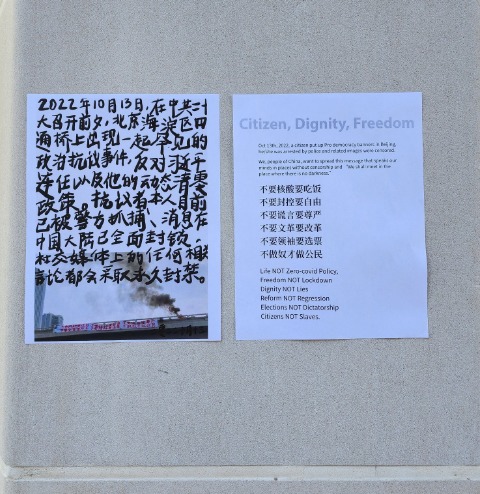 2022年10月13日,在中共二十
大召开前夕,北京海淀区四
通桥上出现一起罕见的
政治抗议事件,反对习近平
连任以及他的动态清零
政策。抗议者本人目前
已被警方抓捕,消息在
中国大陆已全面封锁,
社交媒体上的任何相关
言论都会采取永久封禁。
Citizen, Dignity, Freedom
Oct 13th, 2022, a citizen put up Pro democracy banners in Beijing,
he/she was arrested by police and related images were censored.
We, people of China, want to spread this message that speaks our
minds in places without censorship and "We shall meet in the
place where there is no darkness."
不要核酸要吃饭
不要封控要自由
不要谎言要尊严
不要文革要改革
不要领袖要选票
不做奴才做公民
Life NOT Zero-covid Policy,
Freedom NOT Lockdown
Dignity NOT Lies
Reform NOT Regression
Elections NOT Dictatorship
Citizens NOT Slaves.